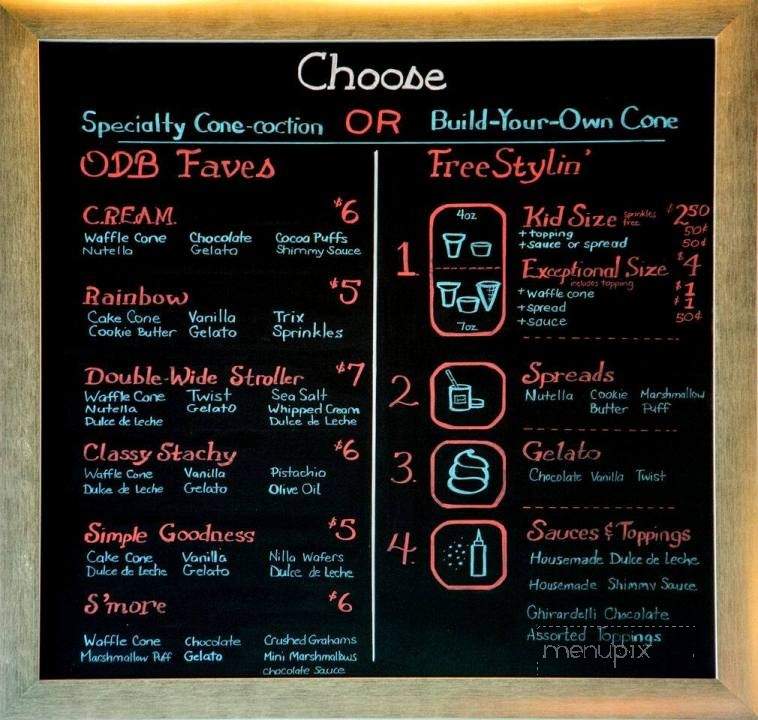 Choose
Specialty Cone-coction OR Build-Your-Own Cone
ODB Faves
C.R.E.A.M. $6
Waffle Cone Chocolate Cocoa Puffs
Nutella Gelato Shimmy Sauce
Rainbow $5
Cake Cone Vanilla Trix
Cookie Butter Gelato Sprinkles
Double-Wide Stroller $7
Waffle Cone Twist Sea Salt
Nutella Gelato Whipped Cream
Dulce de Leche Dulce de Leche
Classy Stachy $6
Waffle Cone Vanilla Pistachio
Dulce de Leche Gelato Olive Oil
Simple Goodness $5
Cake Cone Vanilla Nilla Wafers
Dulce de Leche Gelato Dulce de Leche
S'more $6
Waffle Cone Chocolate Crushed Grahams
Marshmallow Puff Gelato Mini Marshmallows
Chocolate Sauce
FreeStylin'
1.
4oz
7oz
Kid Size sprinkles free $2.50
+topping 50¢
+sauce or spread 50¢
Exceptional Size $4
includes topping
+waffle cone $1
+spread $1
+sauce 50¢
2.
Spreads
Nutella Cookie Marshmallow
Butter Puff
3.
Gelato
Chocolate Vanilla Twist
4.
Sauces & Toppings
Housemade Dulce de Leche
Housemade Shimmy Sauce
Ghirardelli Chocolate
Assorted Toppings
menupix